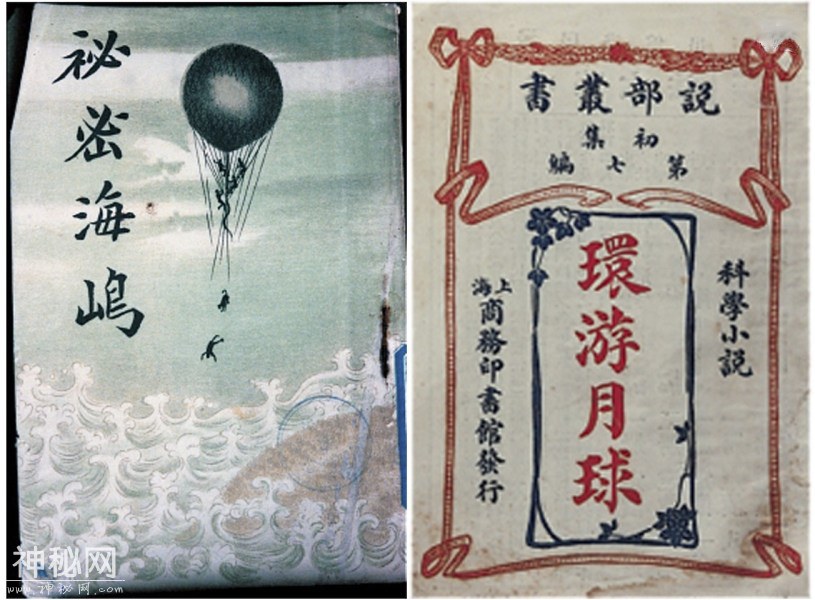 祕密海嶋
説部叢書
初集
第七編
科學小説
環游月球
上海
商務印書館發行
神秘网
www.神秘网.com